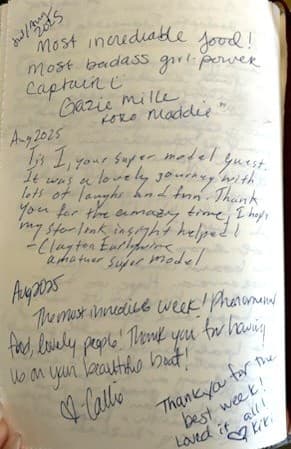 Jul/Aug
2025
Most incredable food!
most badass girl-power
Captain!
Gazie Mille
xoxo Maddie
Aug 2025
Tis I, your super model guest.
It was a lovely journey with
lots of laughs and fun. Thank
you for the amazing time, I hope
my starlink insight helped!
-Clayton
amatuer super model
Aug 2025
The most incredible week! Phenomenal
food, lovely people! Thank you for having
us on your beautiful boat!
♡ Callie
Thank you for the
best week!
Loved it all!
♡ Kiki